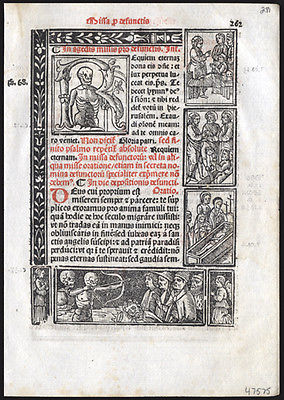 Missa p defunctis
262
281
fo. 68.
In agēdis missis pro defunctis. Int.
Requiem eternaz
dona eis dñe: et
lux perpetua lu
ceat eis. pš.
Te decet hymn⁹ de⁹
i sion: z tibi red
det votū in hie-
rusalem. Exau-
di oronē meam:
ad te omnis ca-
ro veniet. Non dicit Gloria patri. sed fi
nito psalmo repetit absolute Requiem
eternam. In missa defunctorū: vel in ali-
qua misse oratione: etiam in secreta no-
mina defunctorū specialiter exprimere nō
debem⁹. In die depositionis defuncti.
Deus cui proprium est Oratio.
misereri semper z parcere: te sup
plices exoramus pro anima famuli tui:
quā hodie de hoc seculo migrare iussisti:
vt nō tradas eā in manus inimici: neqz
obliuiscaris in finē: sed iubeas eaz a san-
ctis angelis suscipi: z ad patriā paradisi
perduci: vt qr in te sperauit z credidit: nō
penas eternas sustineat: sed gaudia sem
47575